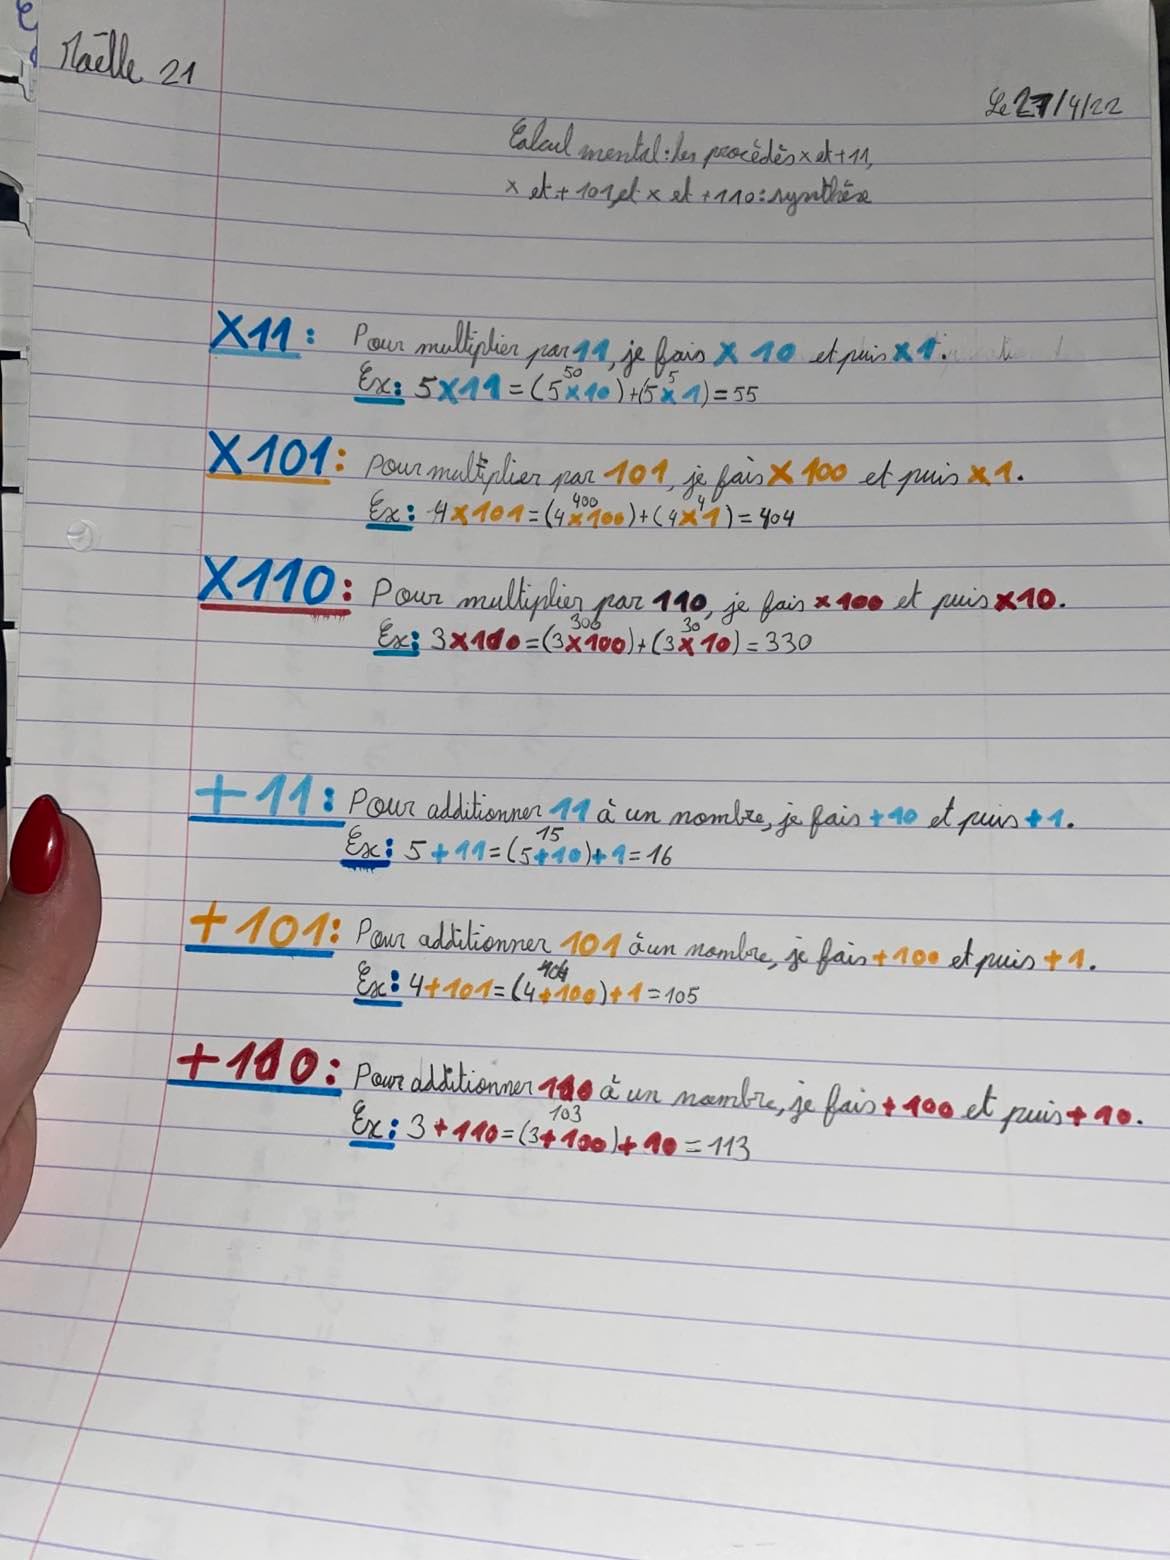 Maëlle 21
Le 27/4/22
Calcul mental: les procédés x et + 11,
x et + 101, et x et + 110: synthèse
X11: Pour multiplier par 11, je fais x 10 et puis x 1.
50 5
Ex: 5x11 = (5x10)+(5x1) = 55
X101: Pour multiplier par 101, je fais x 100 et puis x 1.
400 4
Ex: 4x101 = (4x100)+(4x1) = 404
X110: Pour multiplier par 110, je fais x100 et puis x10.
300 30
Ex: 3x110 = (3x100)+(3x10) = 330
+11: Pour additionner 11 à un nombre, je fais +10 et puis +1.
15
Ex: 5+11 = (5+10)+1 = 16
+101: Pour additionner 101 à un nombre, je fais +100 et puis +1.
104
Ex: 4+101 = (4+100)+1 = 105
+110: Pour additionner 110 à un nombre, je fais +100 et puis +10.
103
Ex: 3+110 = (3+100)+10 = 113